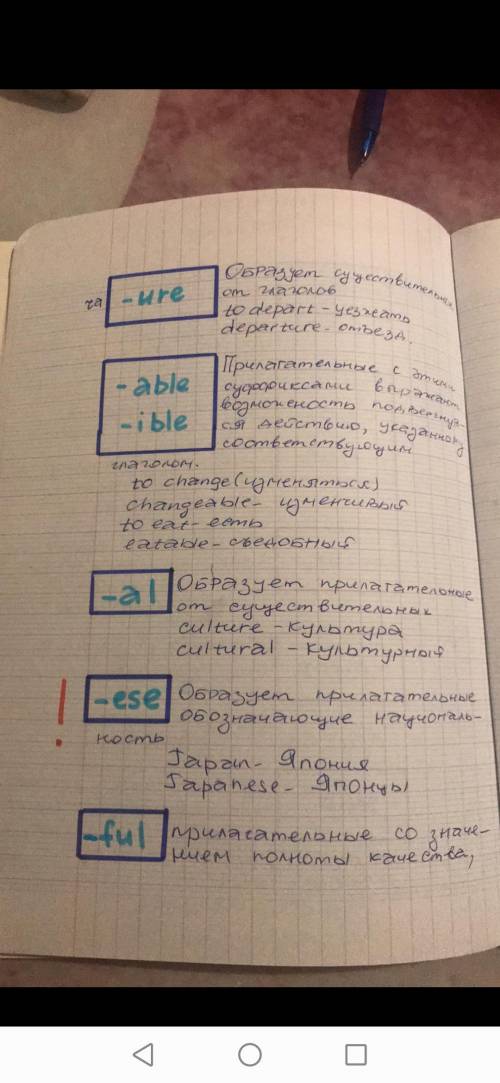 Образует существительные
ча -ure от глаголов
to depart - уезжать
departure - отъезд.
Прилагательные с этими
-able суффиксами выражают
возможность подвергнут-
-ible ся действию, указанному
соответствующим
глаголом.
to change (изменяться)
changeable - изменчивый
to eat - есть
eatable - съедобный
-al Образует прилагательные
от существительных
culture - культура
cultural - культурный
! -ese Образует прилагательные
обозначающие националь-
ность
Japan - Япония
Japanese - Японцы
-ful прилагательные со значе-
нием полноты качества,